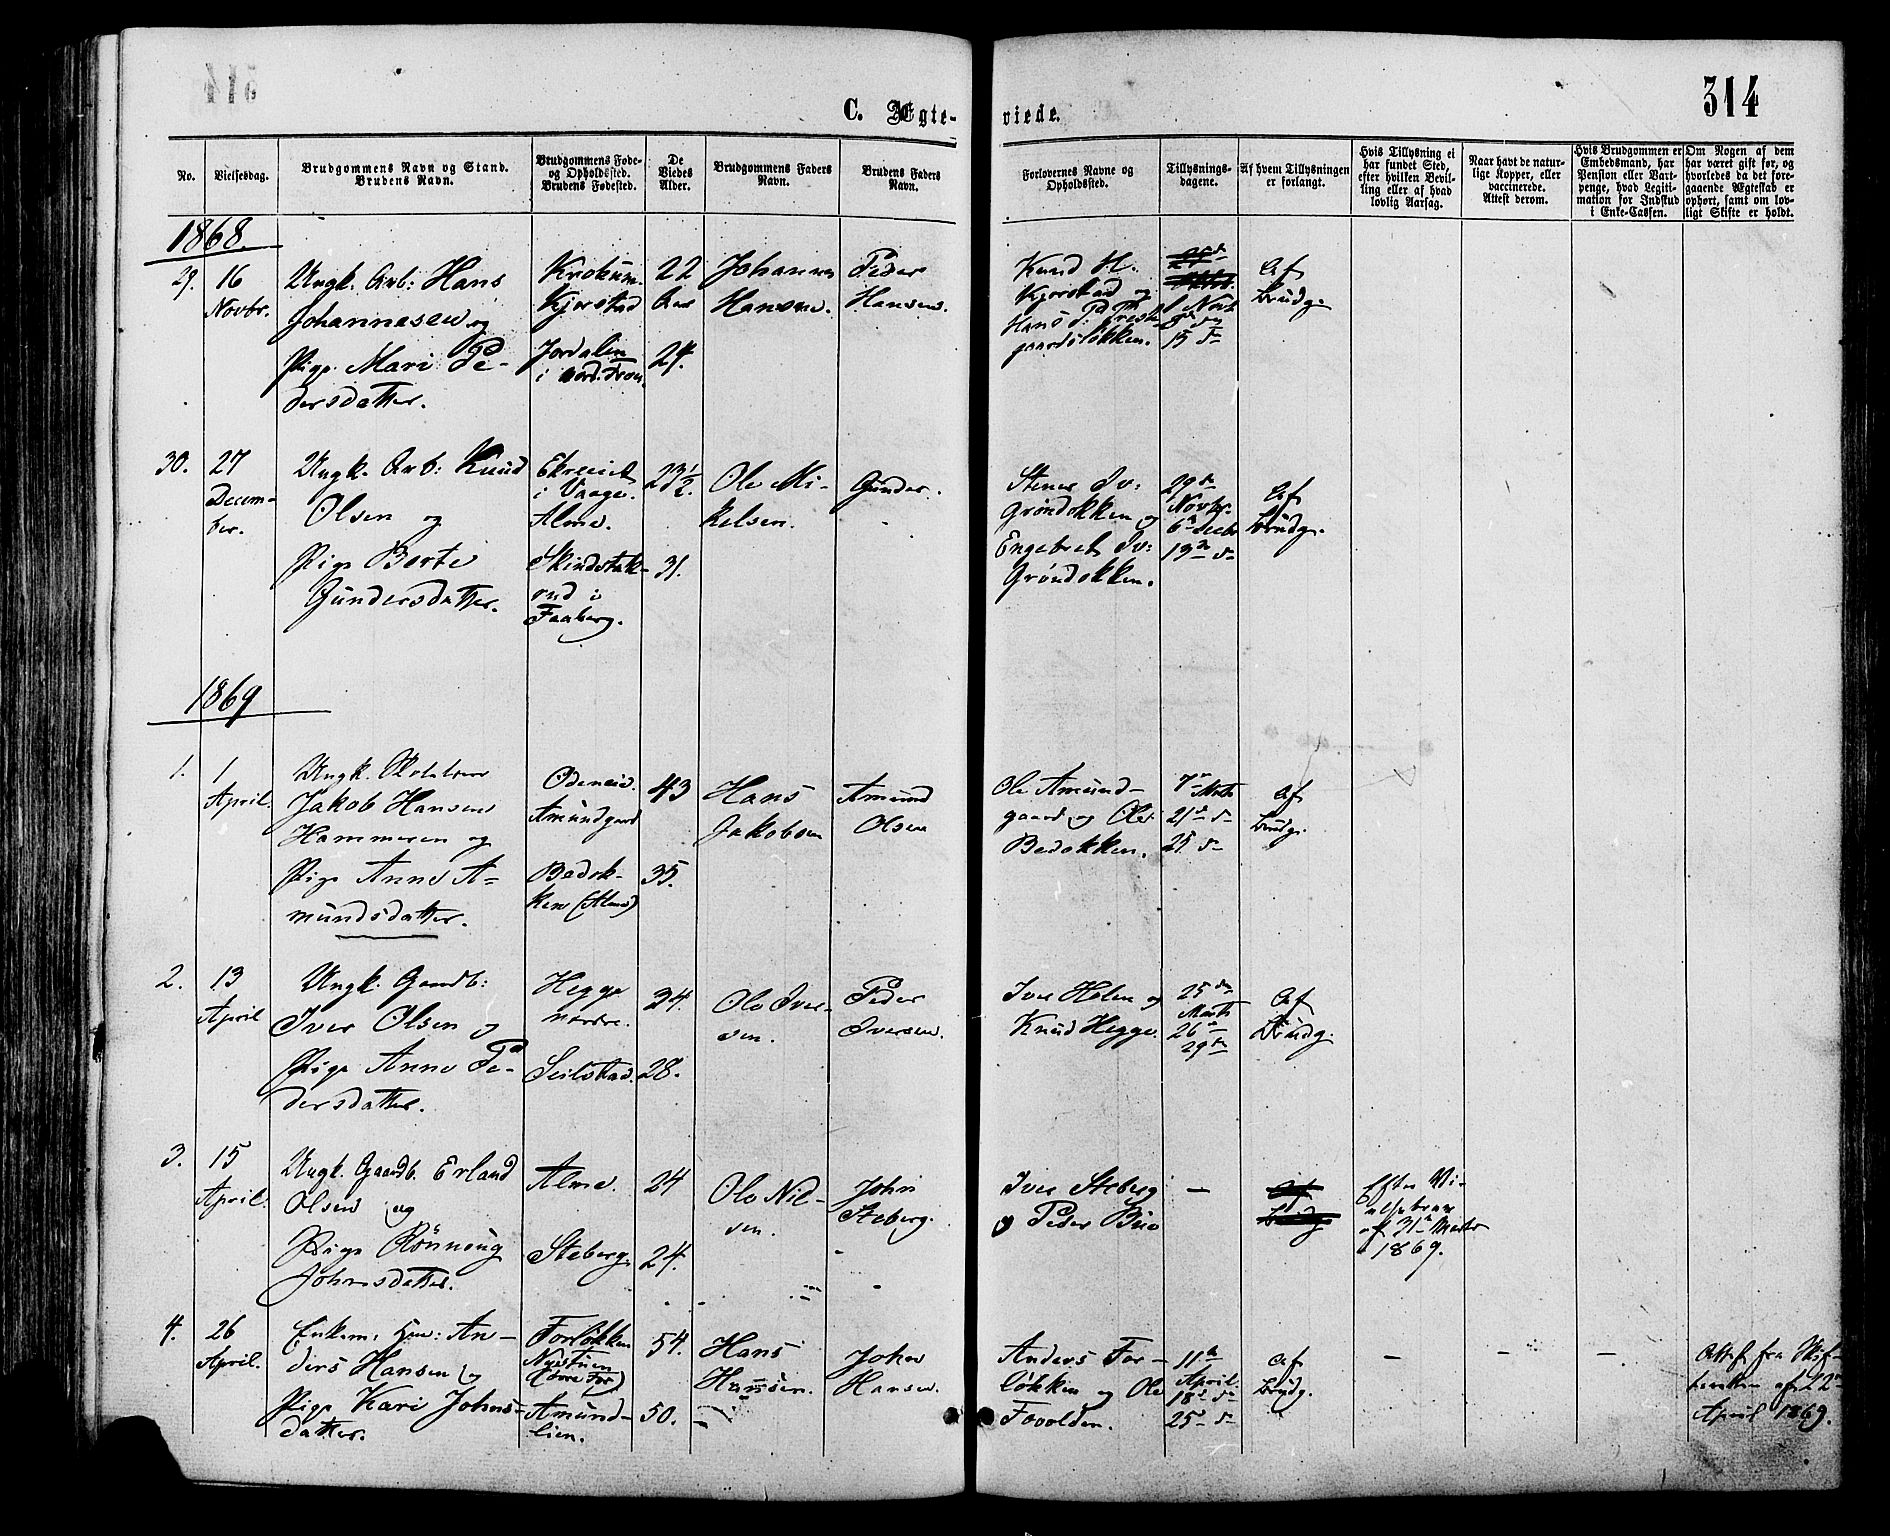 314
C. Ægte-
viede.
No.
Vielsesdag.
Brudgommens Navn og Stand.
Brudens Navn.
Brudgommens Føde-
og Opholdssted.
Brudens Fødested.
De
Viedes
Alder.
Brudgommens Faders
Navn.
Brudens Faders
Navn.
Forlovernes Navne og
Opholdssted.
Tillysnings-
dagene.
Af hvem Tillysningen
er forlangt.
Hvis Tillysning ei
har fundet Sted,
efter hvilken Bevil-
ling eller af hvad
lovlig Aarsag.
Naar havt de natur-
lige Kopper, eller
vaccinerede.
Attest derom.
Hvis Brudgommen er
Embedsmand, har
Pension eller Vart-
penge, hvad Legiti-
mation for Indskud
i Enke-Cassen.
Om Nogen af dem
har været gift før, og
hvorledes da det fore-
gaaende Ægteskab er
ophørt, samt om lov-
ligt Skifte er holdt.
1868.
29.
16
Novbr.
Ungk. Arb: Hans
Johannesen og
Pige Mari Pe-
dersdatter.
Kjorstad
Jordalen
22
Aar
24.
Johannes
Hansen.
Peder
Hansen.
Knud H.
Kjorstad og
Hans P. Prest-
gaardsløkken.
1 Novb
8de
15 d
Af
Brudg.
30.
27
Decem-
ber.
Ungk. Arb: Knud
Olsen og
Pige Berte
Gundersdatter.
i Vaage.
Alme.
rud i
Faaberg.
23½.
31.
Ole Mi-
kelsen.
Gunder.
Stener Iv:
Grøndokken og
Engebret Iv:
Grøndokken.
29de
Novbr.
6te Decbr
13de d
Af
Brudg.
1869
1.
1
April.
Ungk.
Jakob Hansen
Hammeren og
Pige Anne A-
mundsdatter.
Amundgaard
Bedok-
ken (Alme)
43
35.
Hans
Jakobsen
Amund
Olsen
Ole Amund-
gaard og Ole
Bedokken.
7de Marts
21de d
25 d
Af
Brudg.
2.
13
April
Ungk. Gaardb:
Iver Olsen og
Pige Anne Pe-
dersdatter.
Hegge
nordre.
Seilstad.
34.
28.
Ole Iver-
sen.
Peder
Iversen.
Iver Holen og
Knud Hegge.
25de
Marts
26de
29de
Af
Brudg.
3.
15
April.
Ungk. Gaardb. Erland
Olsen og
Pige Rønnoug
Johnsdatter.
Alme.
Steberg.
24
24.
Ole Nil-
sen.
John
Steberg.
Iver Steberg
og Peder Bue
—
Af
Brudg
Efter Vi-
elsebrev
af 31te Marts
1869.
4.
26
April.
Enkem. Huu: An-
ders Hansen og
Pige Kari Johns-
datter.
Forløkken
Nystuen
Amund-
lien.
54.
50.
Hans
Hansen.
John
Hansen.
Anders For-
løkken og Ole
Fovolden.
11te
April
18de d
25de d
Af
Brudg.
—
—
—
Attest fra Skif-
teretten af 22de
April 1869.